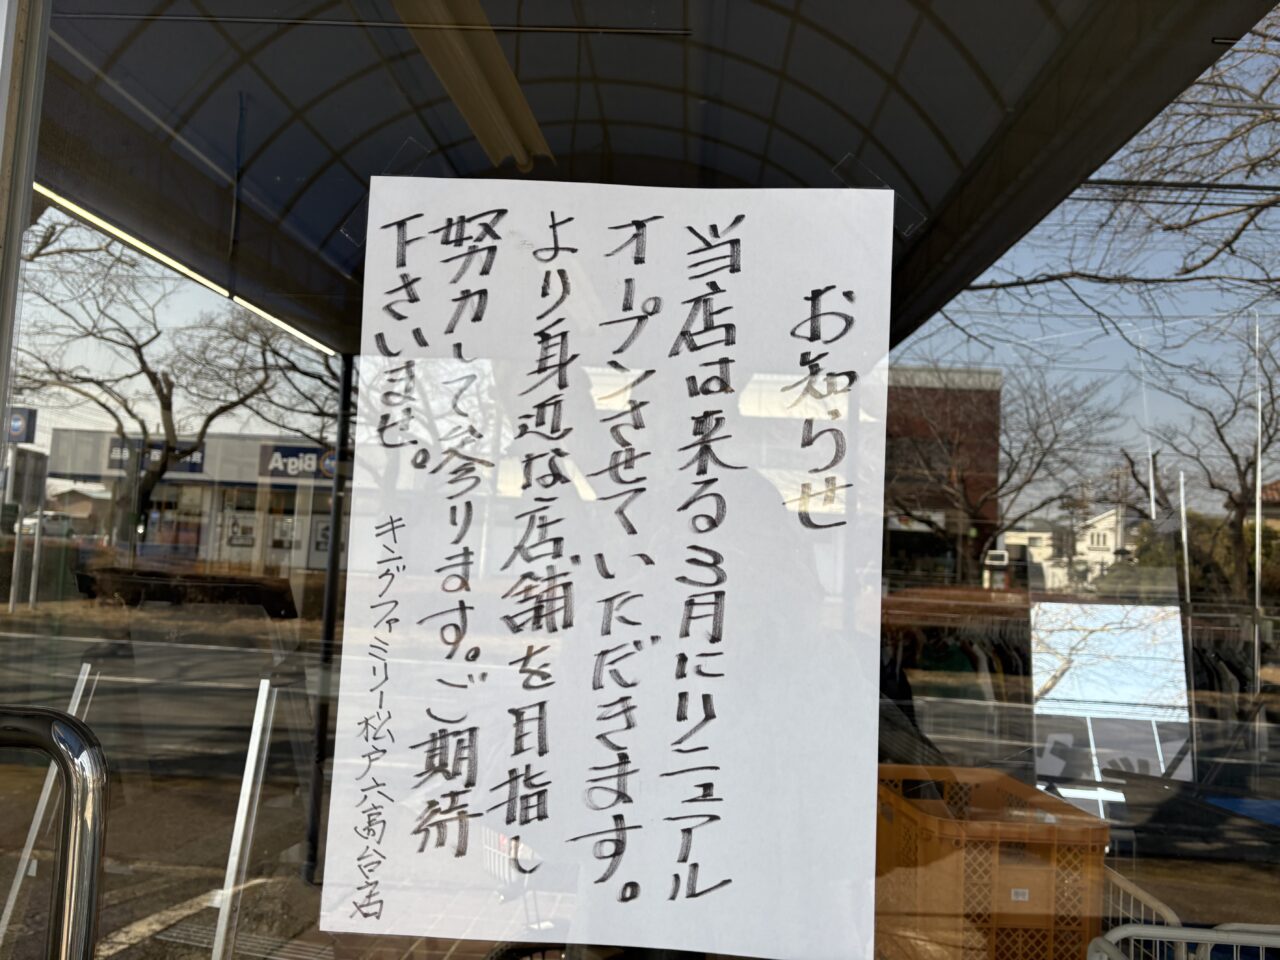 お知らせ
当店は来る3月にリニュアル
オープンさせていただきます。
より身近な店舗を目指し
努力して参ります。ご期待
下さいませ。
キングファミリー松戸六高台店
Big A